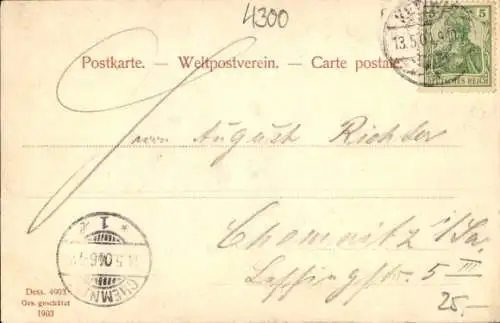 4300
5
13.5.04
DEUTSCHES REICH
Postkarte. — Weltpostverein. — Carte postale.
Herrn August Richter
Chemnitz i/Sa.
Lessingstr. 5 III
25,-
* 1 *
CHEMNITZ
Dess. 4903
Ges. geschützt
1903